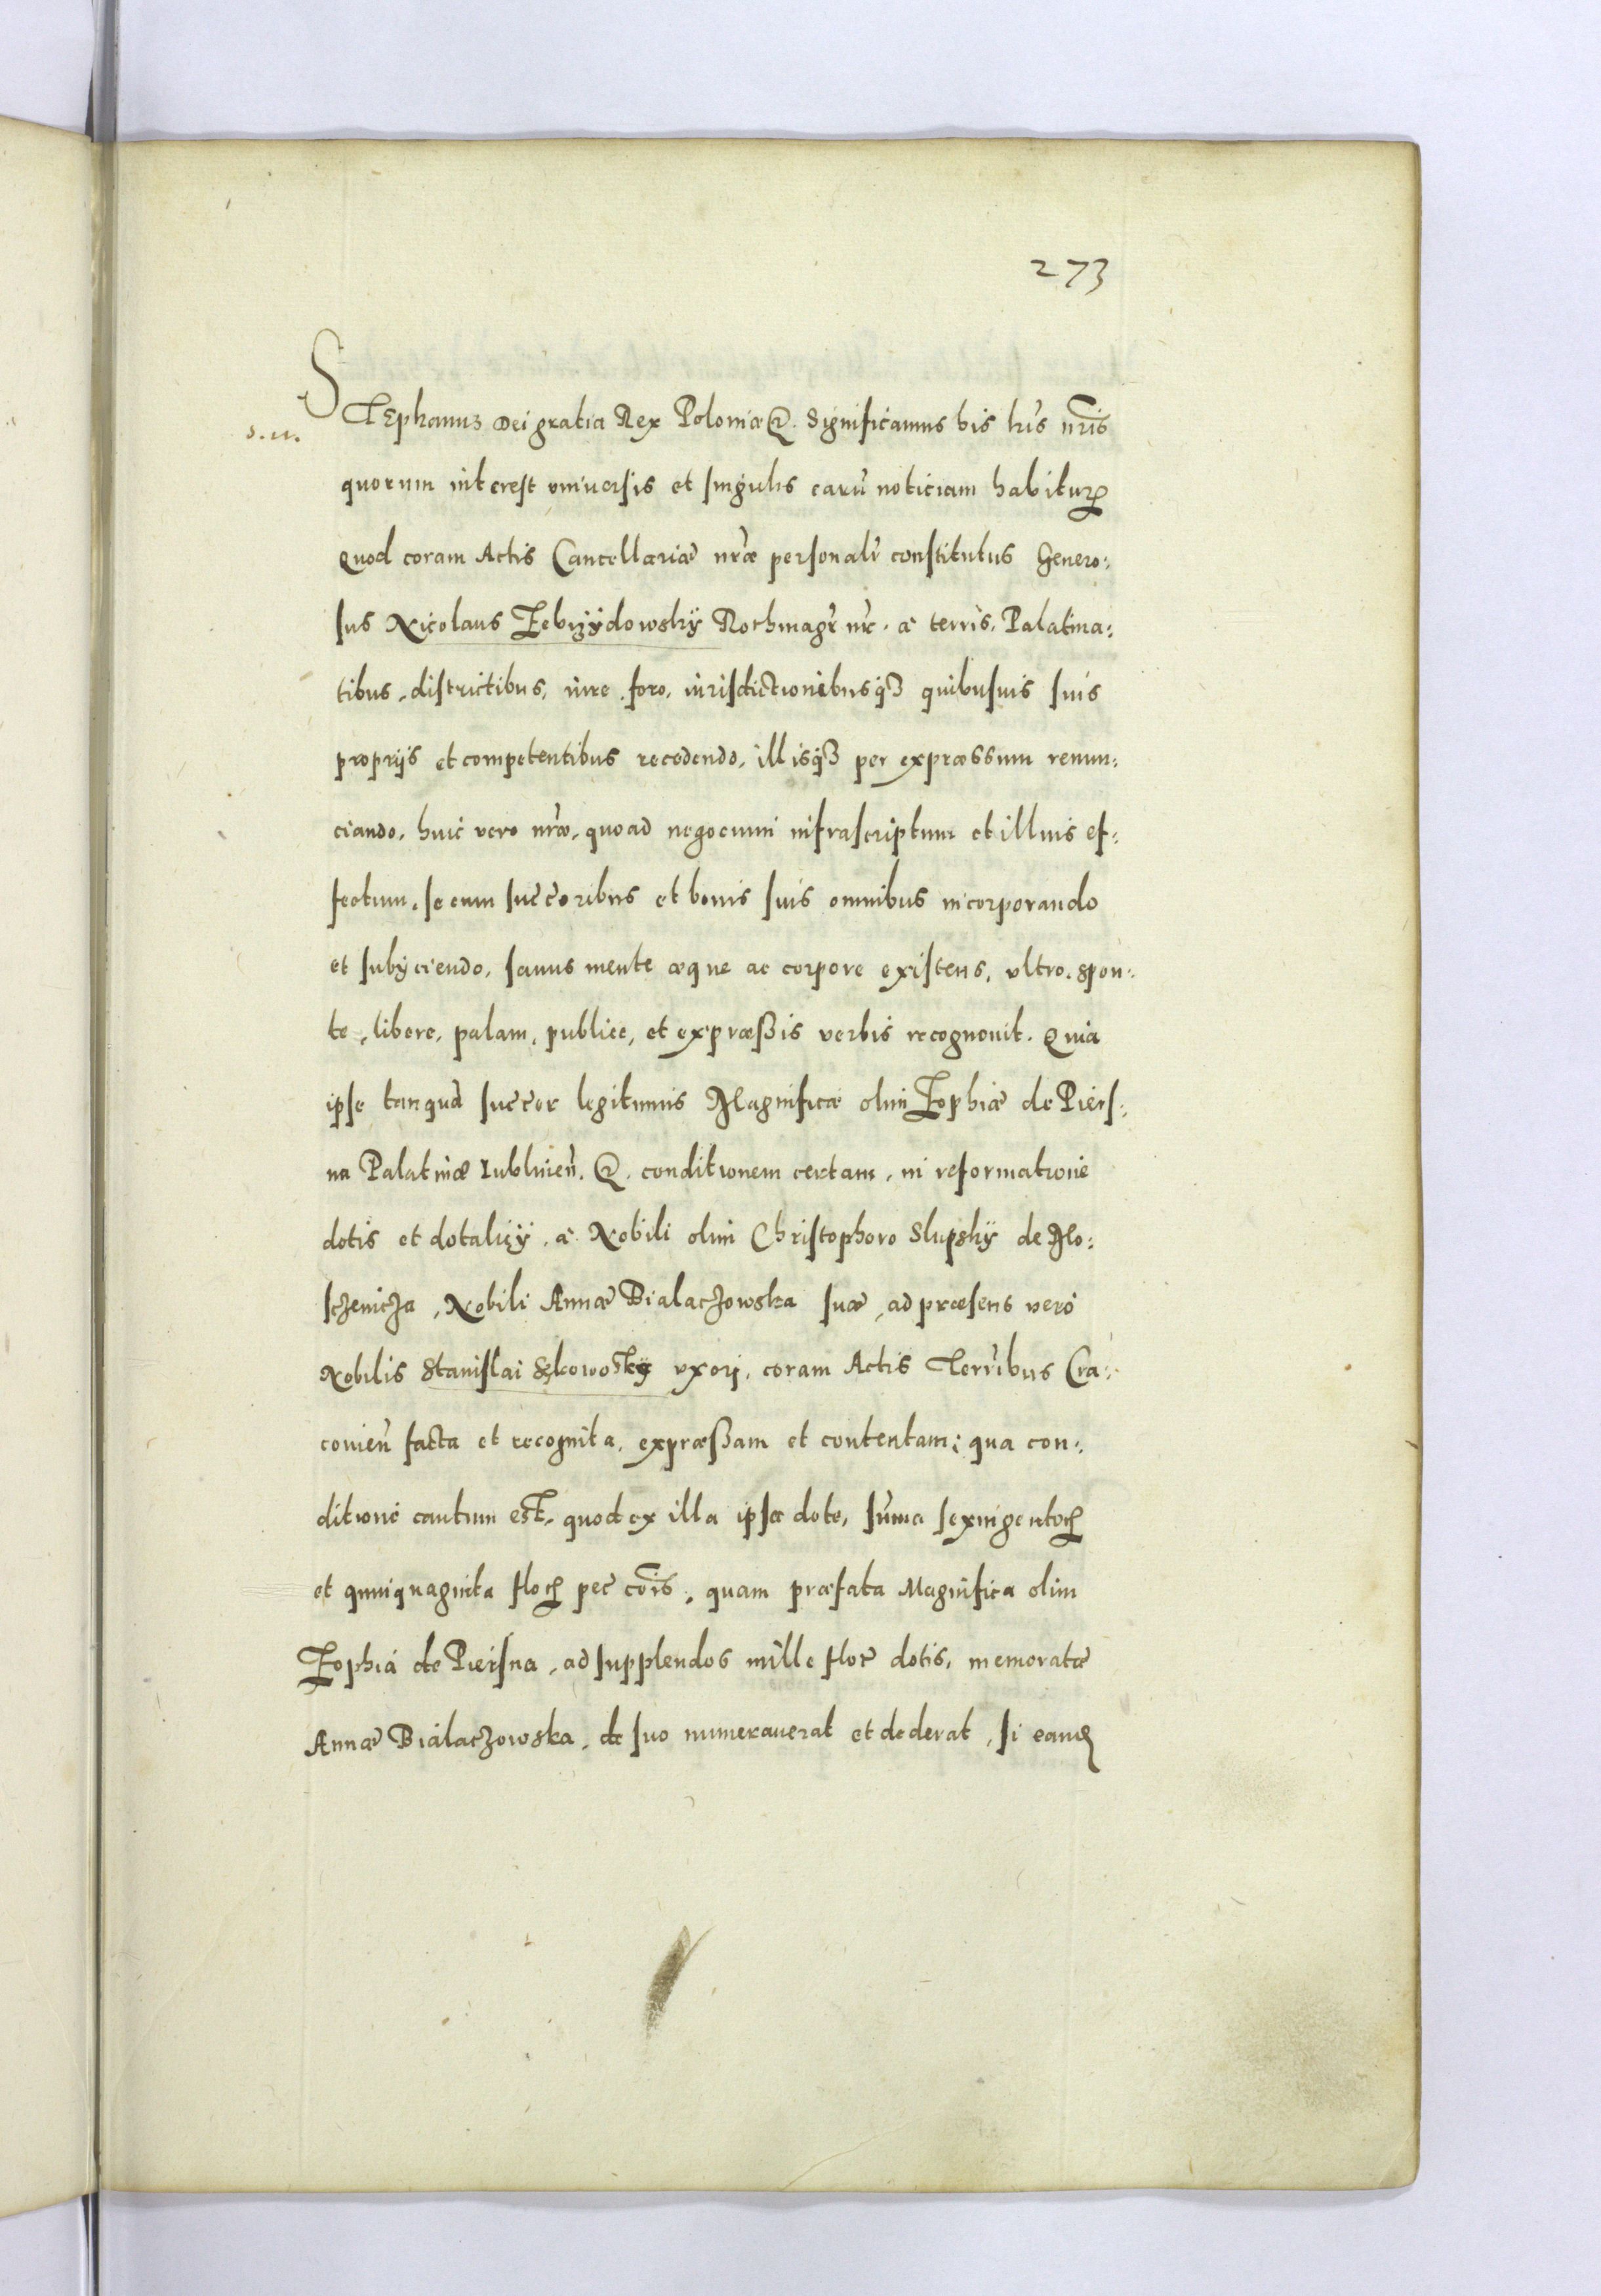 273
STEphanus Dei gratia Rex Poloniæ &. Significamus his lr̃is nr̃is
s. u.
quorum interest vniuersis et singulis earũ noticiam habiturꝝ
Quod coram Actis Cancellariæ nr̃æ personalr̃ constitutus Genero:
sus Nicolaus Zebrzÿdowskÿ Rothmagr̃ nr̃. à terris. Palatina:
tibus, districtibus, iure, foro, iurisdictionibusqȝ quibusuis suis
proprijs et competentibus recedendo, illisqȝ per expræssum renun:
ciando, huic vero nr̃æ, quoad negocium infrascriptum et illius ef:
fectum, se cum succ̃oribus et bonis suis omnibus incorporando
et subÿciendo, sanus mente æque ac corpore existens, vltro, spon:
te, libere, palam, publice, et expræßis verbis recognouit. Quia
ipse tanquã succ̃or legitimus Magnificæ olim Zophiæ de Piers:
na Palatinæ Lublinień. &. conditionem certam, in reformatione
dotis et dotalicÿ, à Nobili olim Christophoro Slupskÿ de Mo:
sczenicza, Nobili Annæ Bialaczowska suæ, ad præsens verò
Nobilis Stanislai Sękowskÿ vxori, coram Actis Terr̃ibus Cra:
couień facta et recognita, expræßam et contentam; qua con:
ditione cautum est, quod ex illa ipsa dote, sum̃a sexingentorꝝ
et quinquaginta florꝝ pec̃ cõis, quam præfata Magnifica olim
Zophia de Piersna, ad supplendos mille flor̃ dotis, memoratæ
Annæ Bialaczowska, de suo numerauerat et dederat, si eandẽ